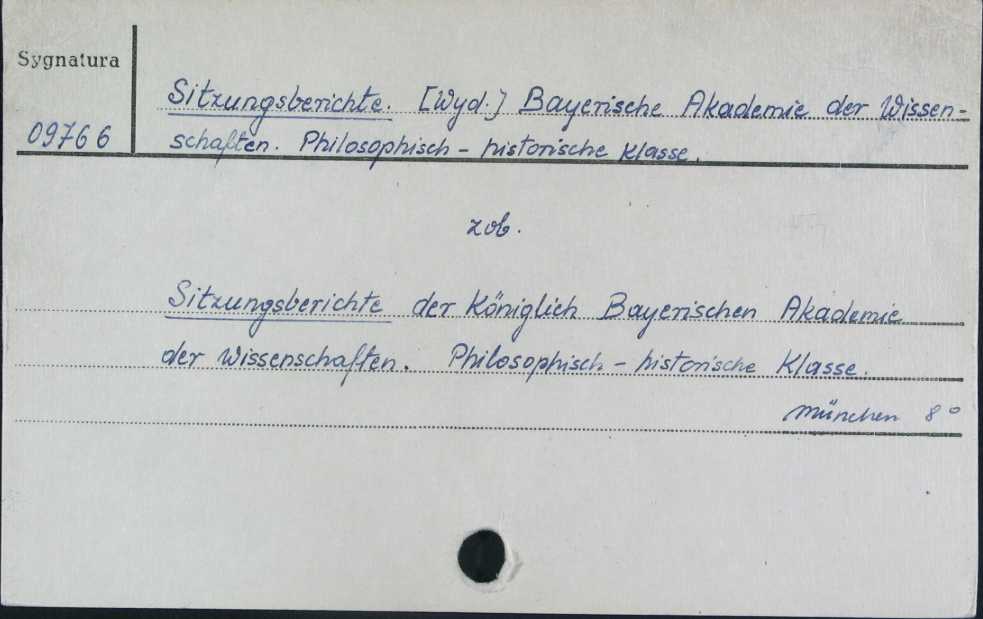 Sygnatura
09766
Sitzungsberichte. [Wyd.] Bayerische Akademie der Wissen-
schaften. Philosophisch - historische Klasse.
zob.
Sitzungsberichte der Königlich Bayerischen Akademie
der Wissenschaften. Philosophisch - historische Klasse.
München 8°